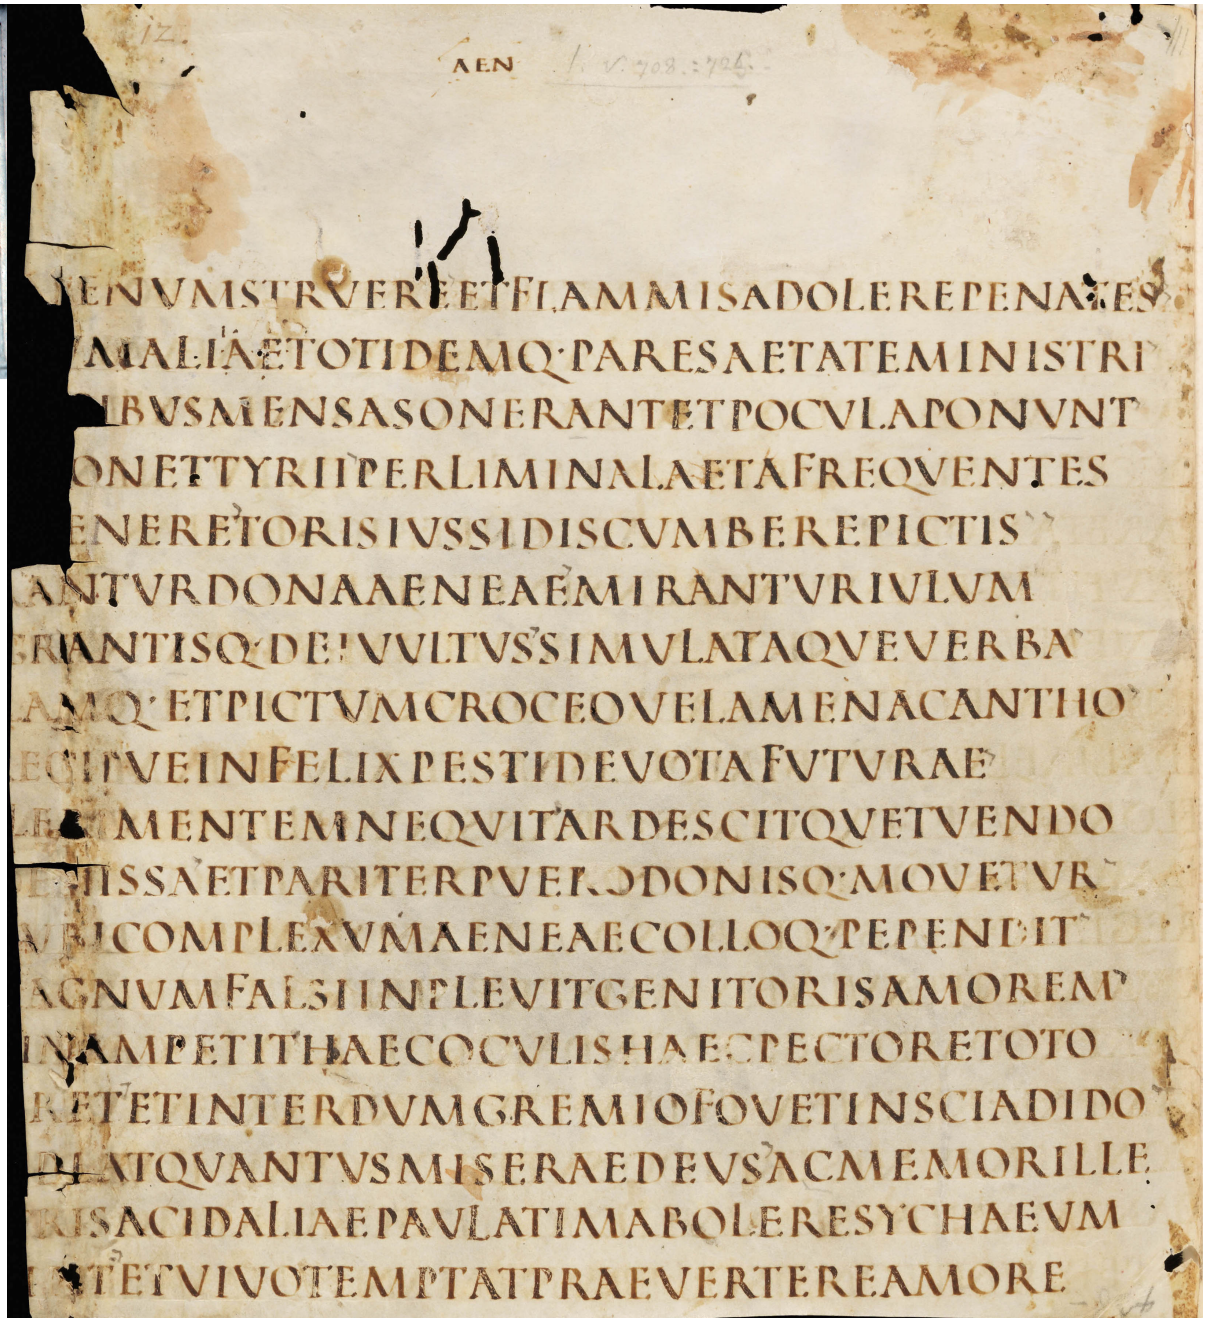 12
AEN
v. 708. : 725.
ENVMSTRVEREETFLAMMISADOLEREPENATES
MALIAETOTIDEMQ·PARESAETATEMINISTRI
IBVSMENSASONERANTETPOCVLAPONVNT
ONETTYRIIPERLIMINALAETAFREQVENTES
ENERETORISIVSSIDISCVMBEREPICTIS
ANTVRDONAAENEAEMIRANTVRIVLVM
GRANTISQ·DEIVVLTVSSIMVLATAQVEVERBA
LAMQ·ETPICTVMCROCEOVELAMENACANTHO
ECIPVEINFELIXPESTIDEVOTAFVTVRAE
LERIMENTEMNEQVITARDESCITQVETVENDO
ENISSAETPARITERPVERODONISQ·MOVETVR
VBICOMPLEXVMAENEAECOLLOQ·PEPENDIT
AGNVMFALSIINPLEVITGENITORISAMOREM
INAMPETITHAECOCVLISHAECPECTORETOTO
RETETINTERDVMGREMIOFOVETINSCIADIDO
DIATQVANTVSMISERAEDEVSACMEMORILLE
RISACIDALIAEPAVLATIMABOLERESYCHAEVM
IPITETVIVOTEMPTATPRAEVERTEREAMORE